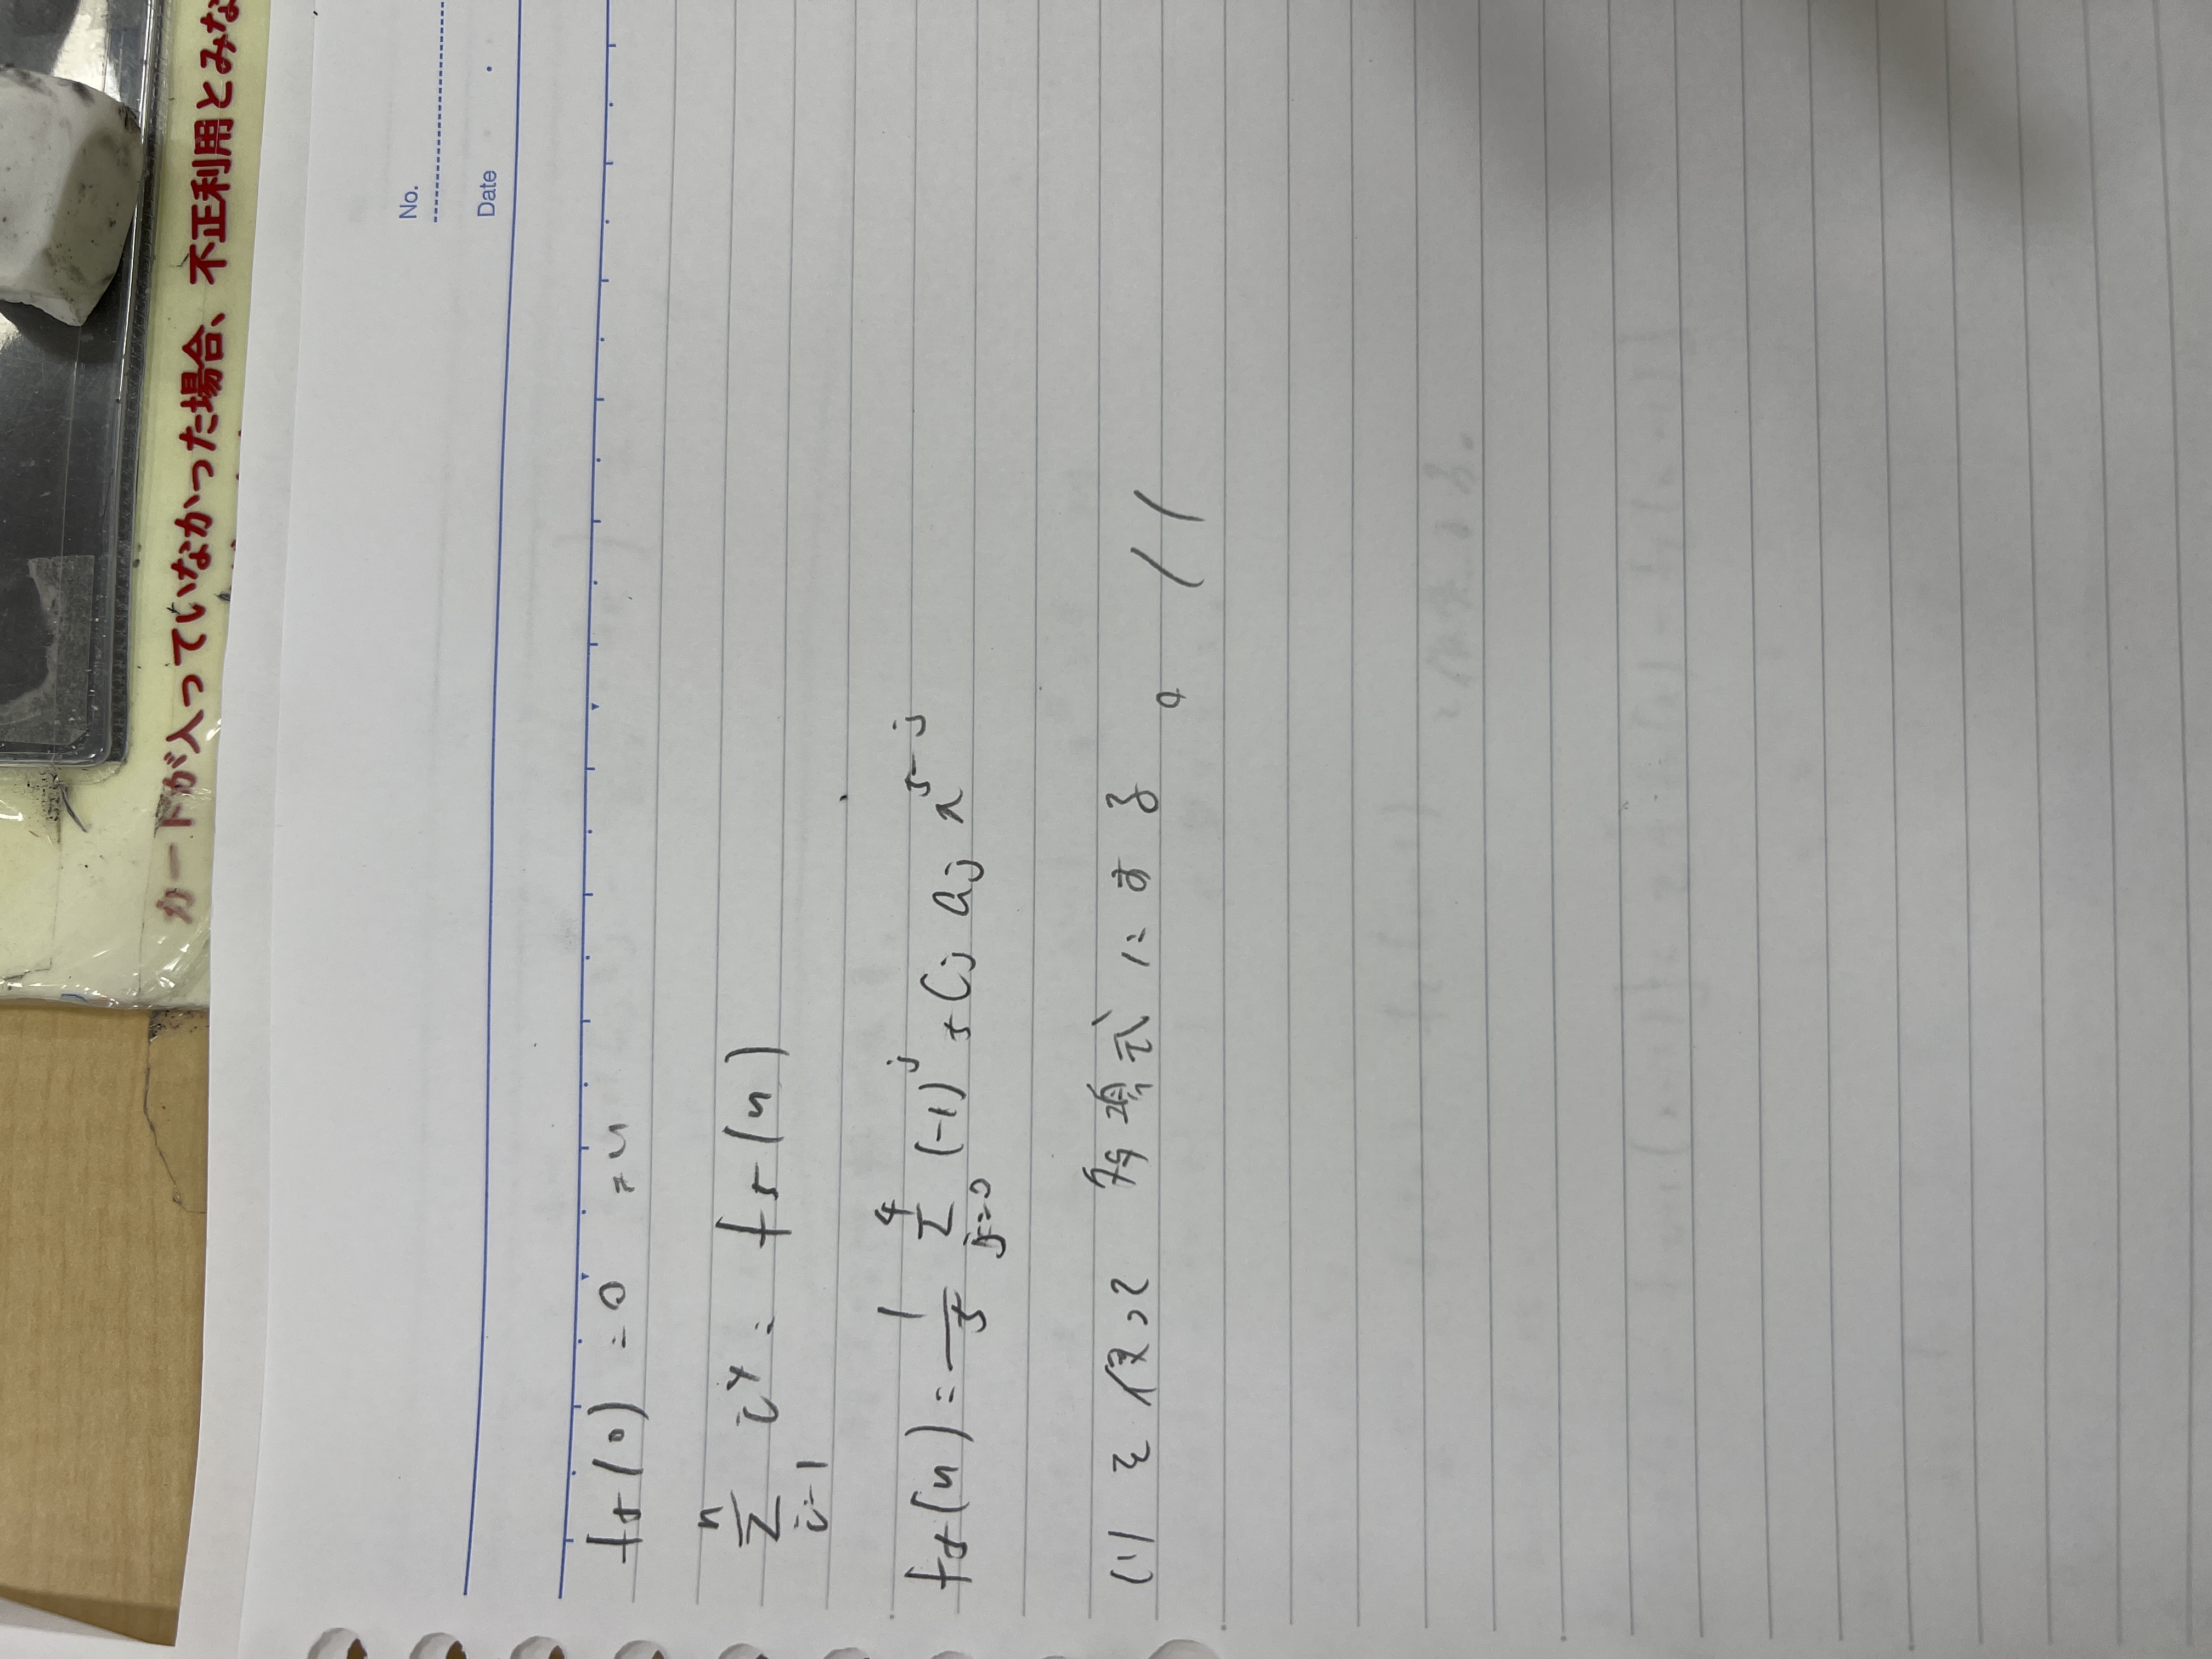 カードが入っていなかった場合、不正利用とみな
No.
Date
f5(0) = 0 = u
n
Σ i^4 = f5(n)
i=1
f5(n) = 1/5 4Σj=0 (-1)^j 5Cj aj x^5-j
(1) を使って 多項式にする。 //